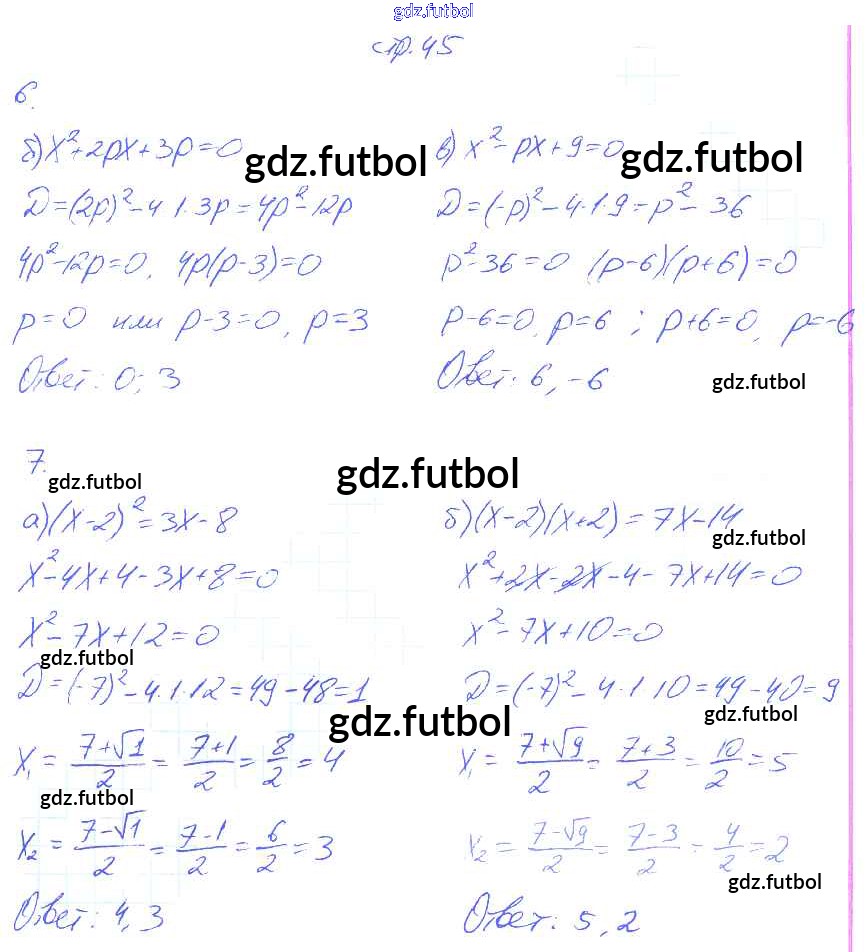 gdz.futbol
стр. 45
6.
б) x²+2px+3p=0 gdz.futbol
D=(2p)²-4·1·3p=4p²-12p
4p²-12p=0, 4p(p-3)=0
p=0 или p-3=0, p=3
Ответ: 0; 3
в) x²-px+9=0 gdz.futbol
D=(-p)²-4·1·9=p²-36
p²-36=0 (p-6)(p+6)=0
p-6=0, p=6 ; p+6=0, p=-6
Ответ: 6, -6
gdz.futbol
7.
gdz.futbol
gdz.futbol
а) (x-2)²=3x-8
x²-4x+4-3x+8=0
x²-7x+12=0
gdz.futbol
D=(-7)²-4·1·12=49-48=1
gdz.futbol
x₁ = (7+√1)/2 = (7+1)/2 = 8/2 = 4
gdz.futbol
x₂ = (7-√1)/2 = (7-1)/2 = 6/2 = 3
Ответ: 4, 3
б) (x-2)(x+2)=7x-14
gdz.futbol
x²+2x-2x-4-7x+14=0
x²-7x+10=0
D=(-7)²-4·1·10=49-40=9
gdz.futbol
x₁ = (7+√9)/2 = (7+3)/2 = 10/2 = 5
x₂ = (7-√9)/2 = (7-3)/2 = 4/2 = 2
gdz.futbol
Ответ: 5, 2